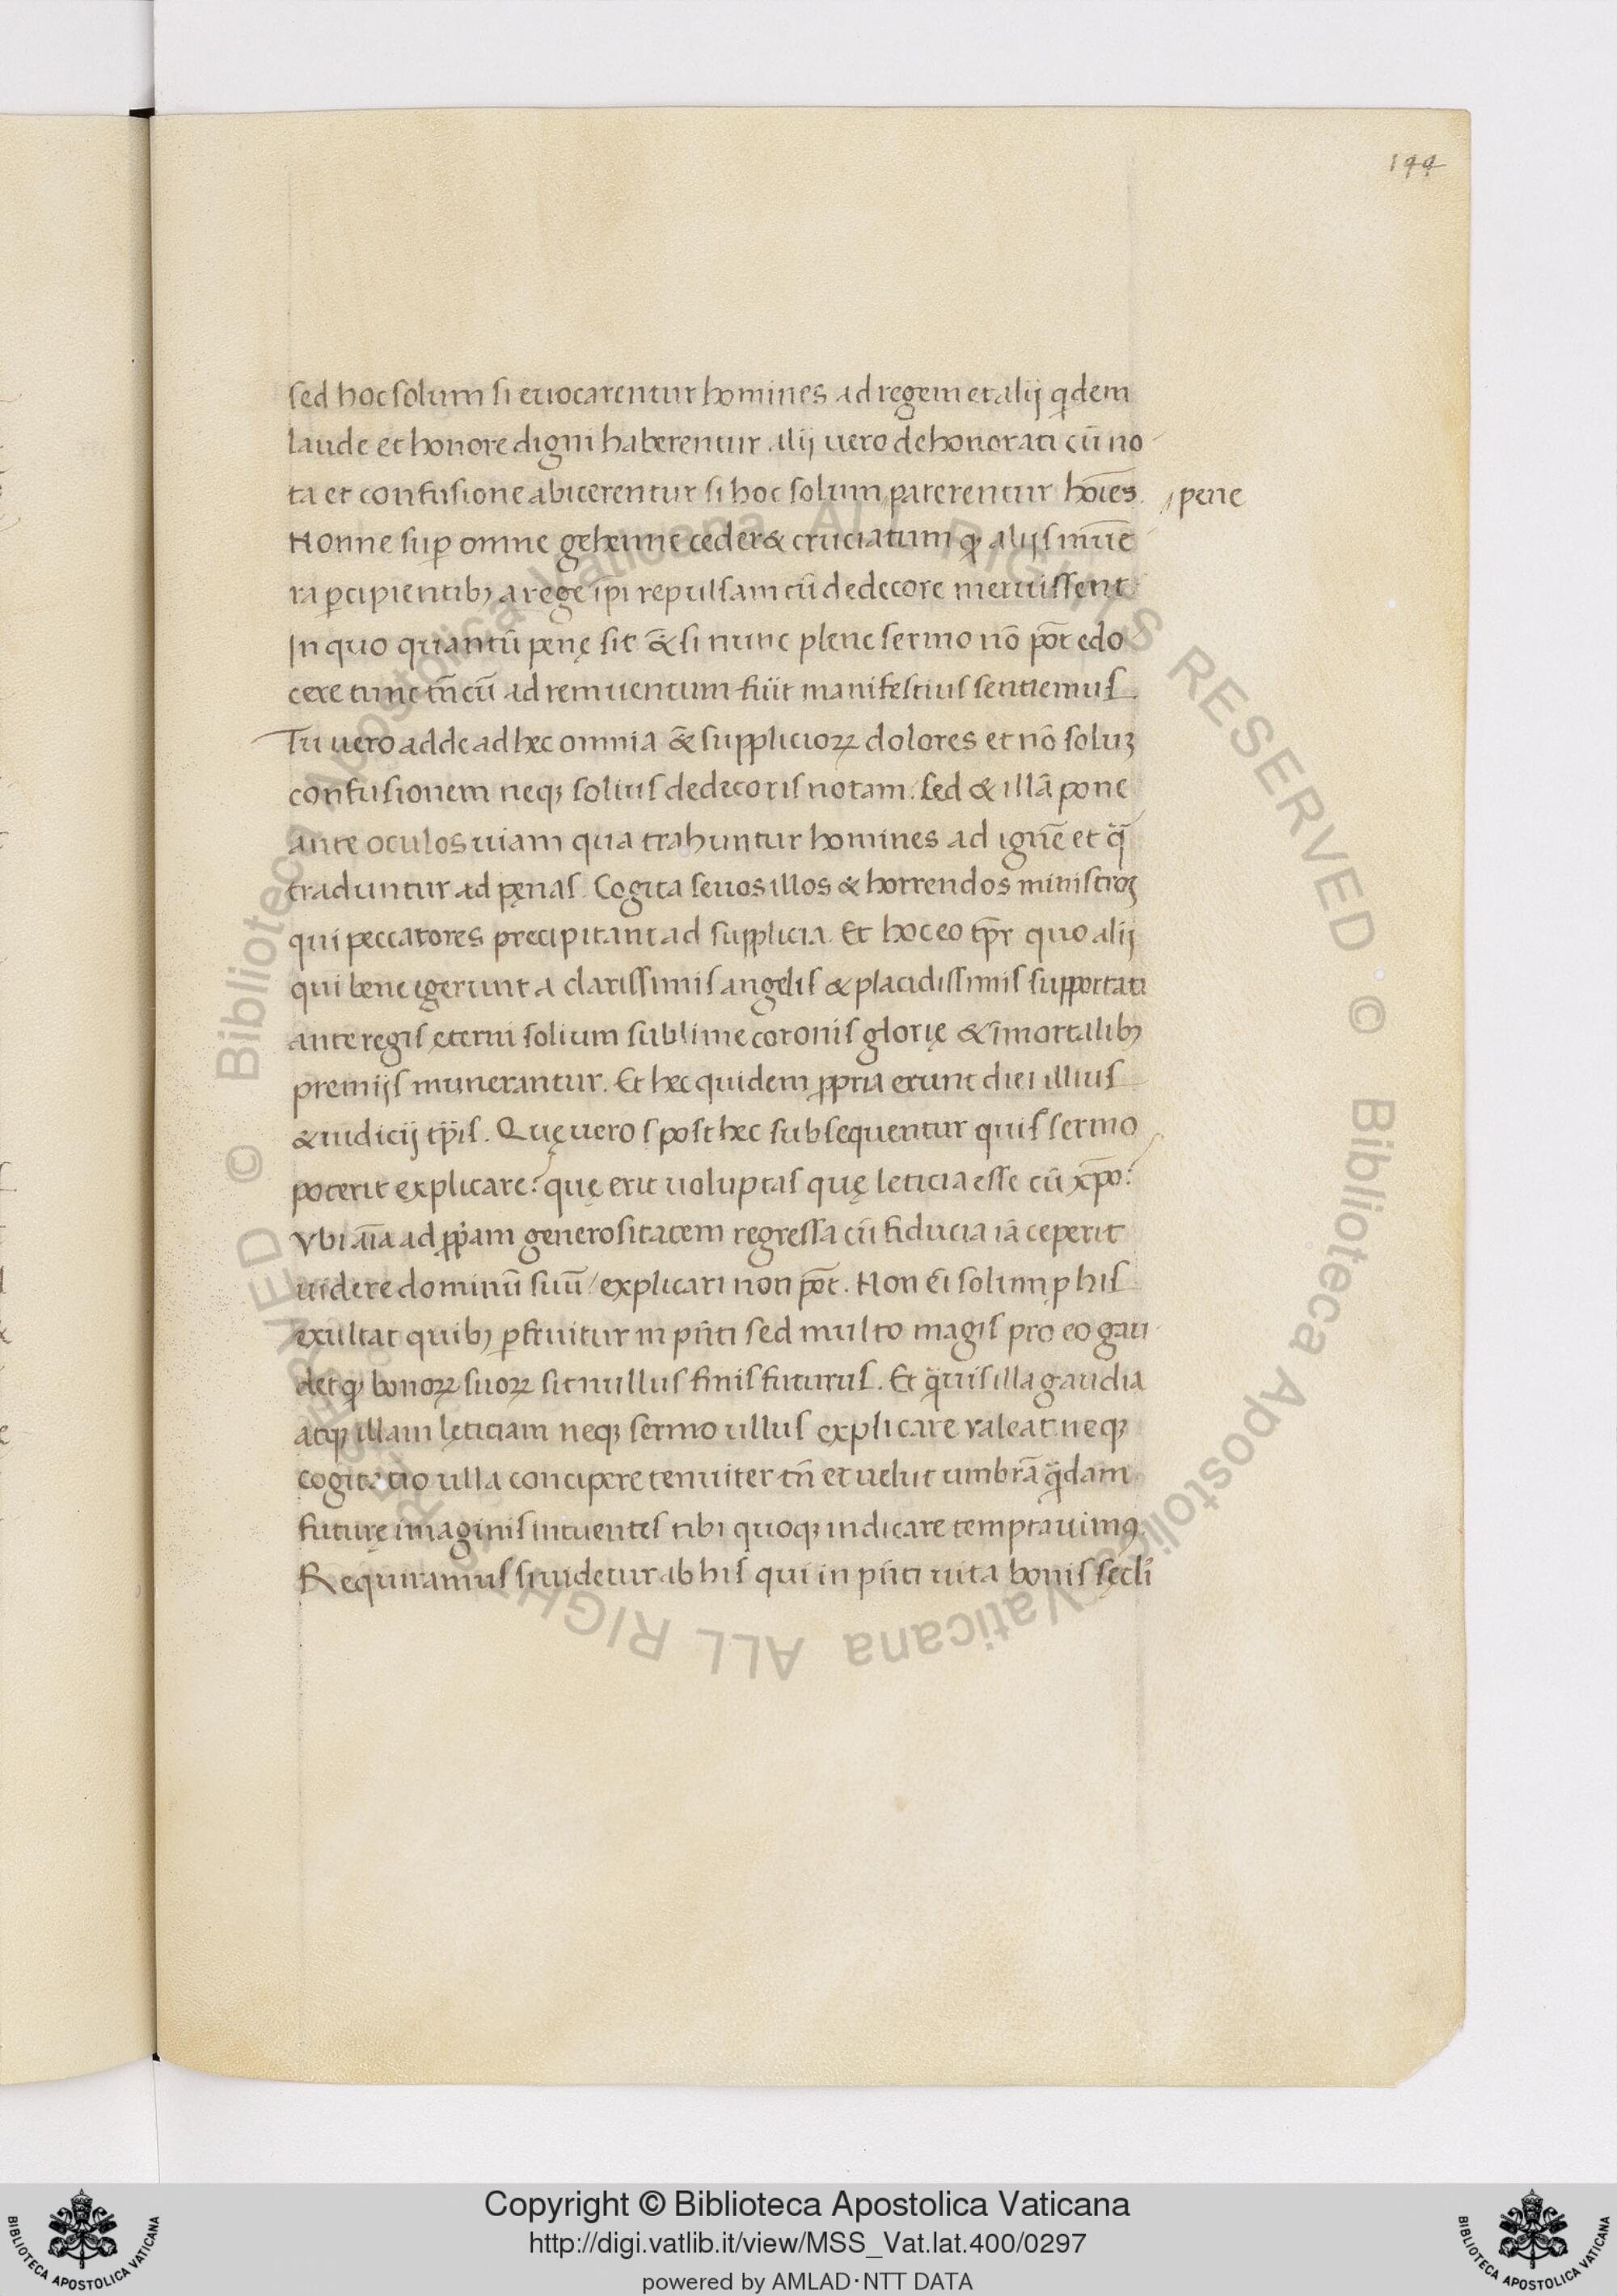 144
sed hoc solum si euocarentur homines ad regem et alij qdem
laude et honore digni haberentur alij uero dehonorati cū no-
ta et confusione abicerentur si hoc solum paterentur hoīes. pene
Nonne sup̄ omne gehenne ceder& cruciatum qꝫ alijs mūe
ra ꝑcipientibꝫ a rege ip̄i repulsam cū dedecore meruissent
In quo quantū penę sit & si nunc plene sermo nō pōt edo
cere tunc tn̄ cū ad rem uentum fu̅it manifestius sentiemus
Tu uero adde ad hec omnia & suppliciorꝝ dolores et nō soluꝫ
confusionem neqꝫ solius dedecoris notam. sed & illā pone
ante oculos uiam qua trahuntur homines ad ignē et q̄
traduntur ad pęnas. Cogita seuos illos & horrendos ministroꝫ
qui peccatores precipitant ad supplicia. Et hoc eo tp̄r quo alij
qui bene egerunt a clarissimis angelis & placidissimis supportati
ante regis eterni solium sublime coronis glorię & īmortalibꝫ
premijs munerantur. Et hec quidem ꝓpria erunt diei illius
& iudicij tp̄is. Quę uero s post hec subsequentur quis sermo
poterit explicare? quę erit uoluptas quę leticia esse cū xp̄o?
Vbi aīa ad ꝓpam generositatem regressa cū fiducia iā ceperit
uidere dominū suū / explicari non pōt. Non ēi solum p his
exultat quibꝫ ꝑfruitur in pn̄ti sed multo magis pro eo gau-
det qꝫ bonorꝝ suorꝝ sit nullus finis futurus. Et q̄uis illa gaudia
atqꝫ illam lęticiam neqꝫ sermo ullus explicare valeat neqꝫ
cogitatio ulla concipere tenuiter tn̄ et uelut umbrā q̄dam
futurę imaginis intuentes tibi quoqꝫ indicare temptauimꝰ.
Requiramus si uidetur ab his qui in pn̄ti uita bonis sęcli
© Biblioteca Apostolica Vaticana ALL RIGHTS RESERVED © Biblioteca Apostolica Vaticana ALL RIGHTS RESERVED
Copyright © Biblioteca Apostolica Vaticana
http://digi.vatlib.it/view/MSS_Vat.lat.400/0297
powered by AMLAD·NTT DATA
BIBLIOTECA APOSTOLICA VATICANA
BIBLIOTECA APOSTOLICA VATICANA